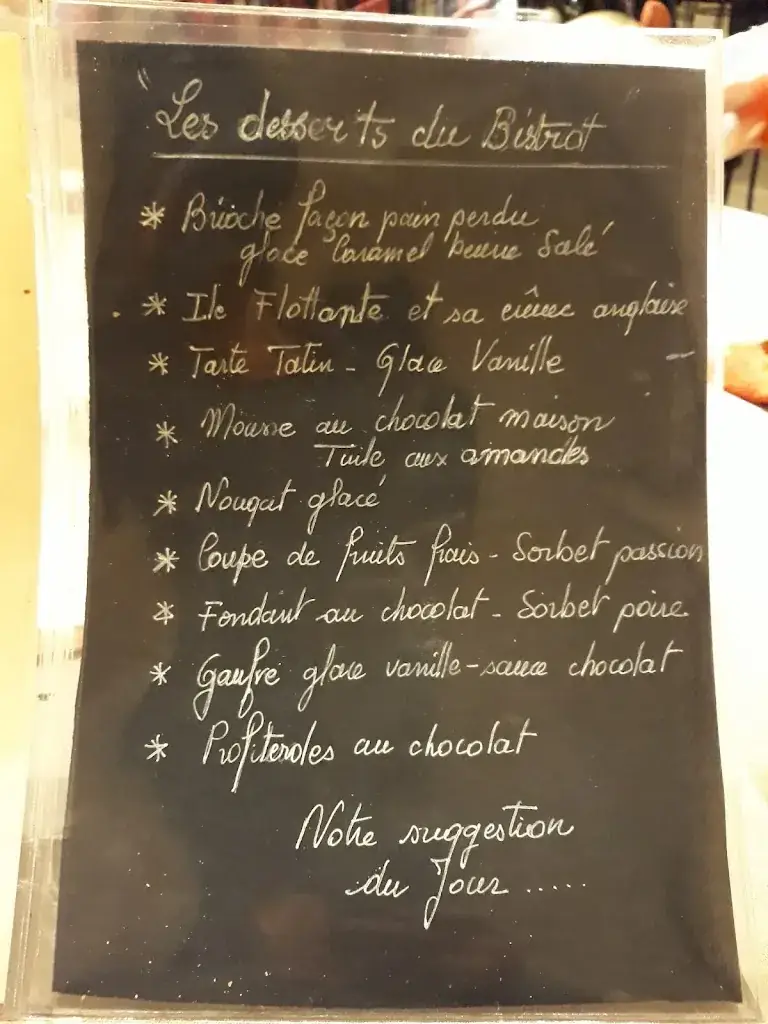 "Les desserts du Bistrot"
* Brioche façon pain perdu
glace Caramel beurre Salé
* Ile Flottante et sa crême anglaise
* Tarte Tatin - Glace Vanille
* Mousse au chocolat maison
Tuile aux amandes
* Nougat glacé
* Coupe de fruits frais - Sorbet passion
* Fondant au chocolat - Sorbet poire
* Gaufre glace vanille - sauce chocolat
* Profiteroles au chocolat
Notre suggestion
du Jour ......